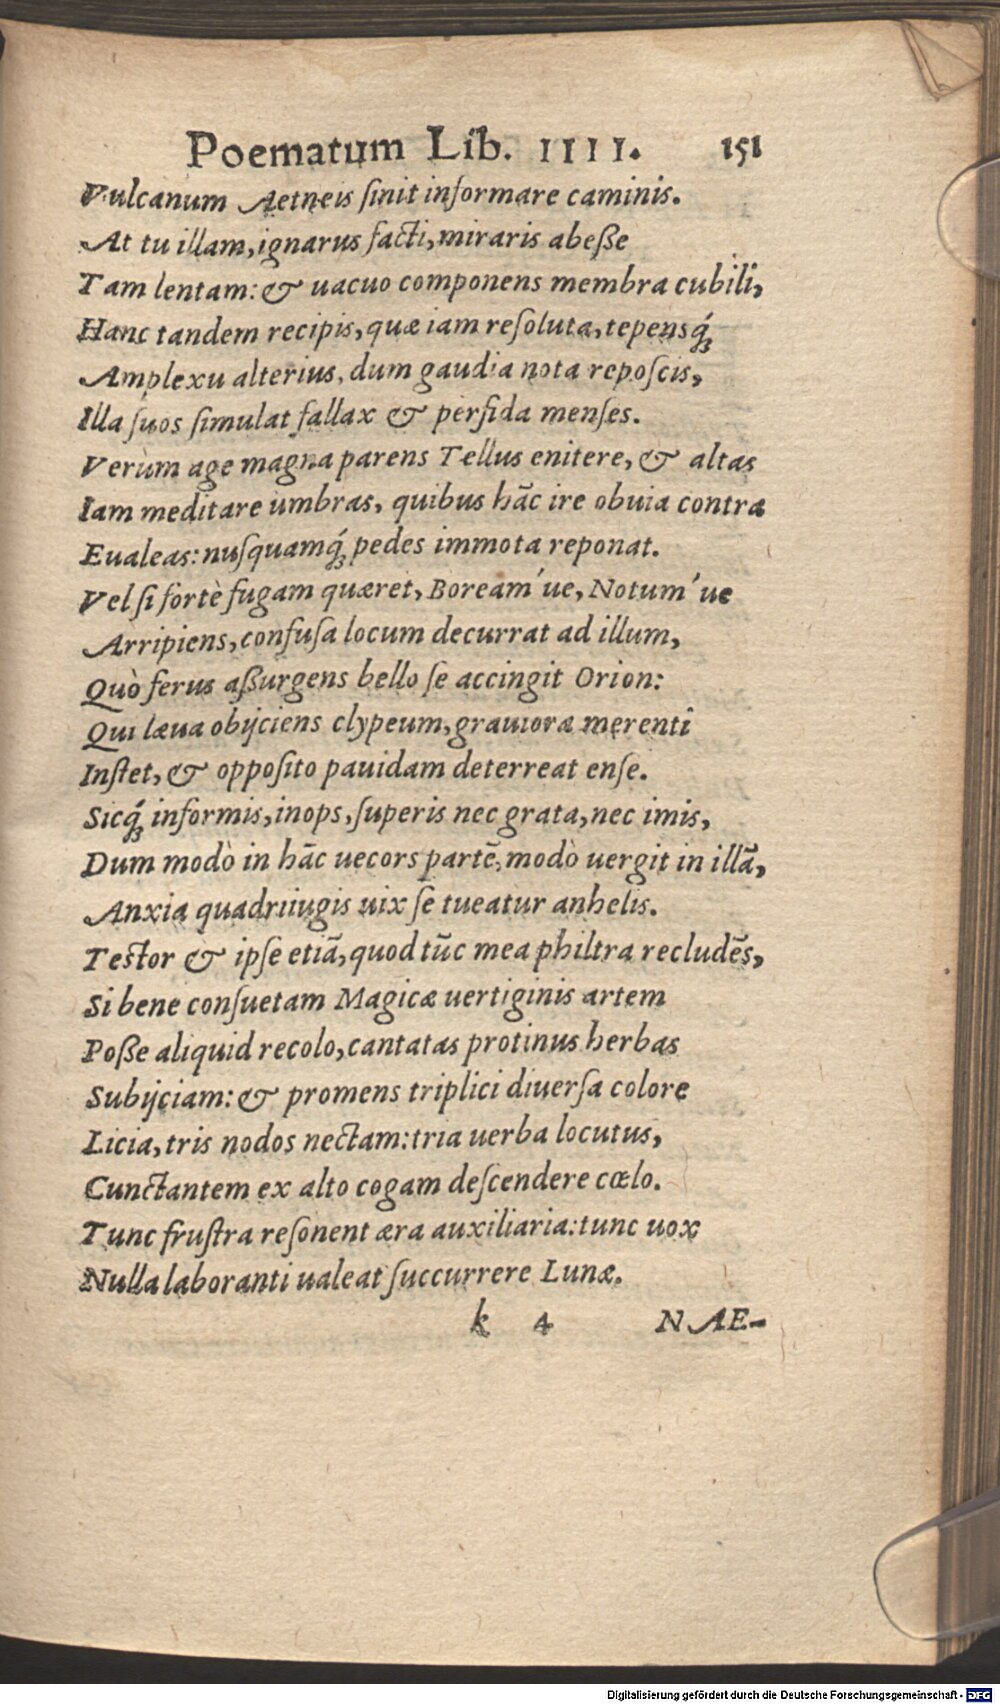 Poematum Lib. IIII. 151
Vulcanum Aetneis ſinit informare caminis.
At tu illam, ignarus facti, miraris abeße
Tam lentam: & uacuo componens membra cubili,
Hanc tandem recipis, quæ iam reſoluta, tepensq́;
Amplexu alterius, dum gaudia nota repoſcis,
Illa ſuos ſimulat fallax & perfida menſes.
Verùm age magna parens Tellus enitere, & altas
Iam meditare umbras, quibus hāc ire obuia contra
Eualeas: nuſquamq́; pedes immota reponat.
Vel ſi fortè fugam quæret, Boream´ue, Notum´ue
Arripiens, confuſa locum decurrat ad illum,
Quò ferus aßurgens bello ſe accingit Orion:
Qui læua obijciens clypeum, grauiora merenti
Inſtet, & oppoſito pauidam deterreat enſe.
Sicq́; informis, inops, ſuperis nec grata, nec imis,
Dum modò in hāc uecors partē, modò uergit in illā,
Anxia quadriiugis uix ſe tueatur anhelis.
Teſtor & ipſe etiā, quod tūc mea philtra recludēs,
Si bene conſuetam Magicæ uertiginis artem
Poße aliquid recolo, cantatas protinus herbas
Subijciam: & promens triplici diuerſa colore
Licia, tris nodos nectam: tria uerba locutus,
Cunctantem ex alto cogam deſcendere cœlo.
Tunc fruſtra reſonent æra auxiliaria: tunc uox
Nulla laboranti ualeat ſuccurrere Lunæ.
k 4 NAE-
Digitalisierung gefördert durch die Deutsche Forschungsgemeinschaft - DFG